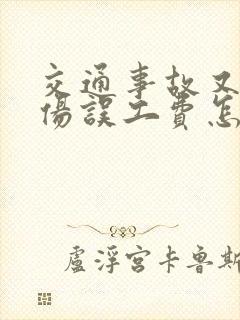 交通事故又
傷誤工費怎
盧浮宮卡魯斯